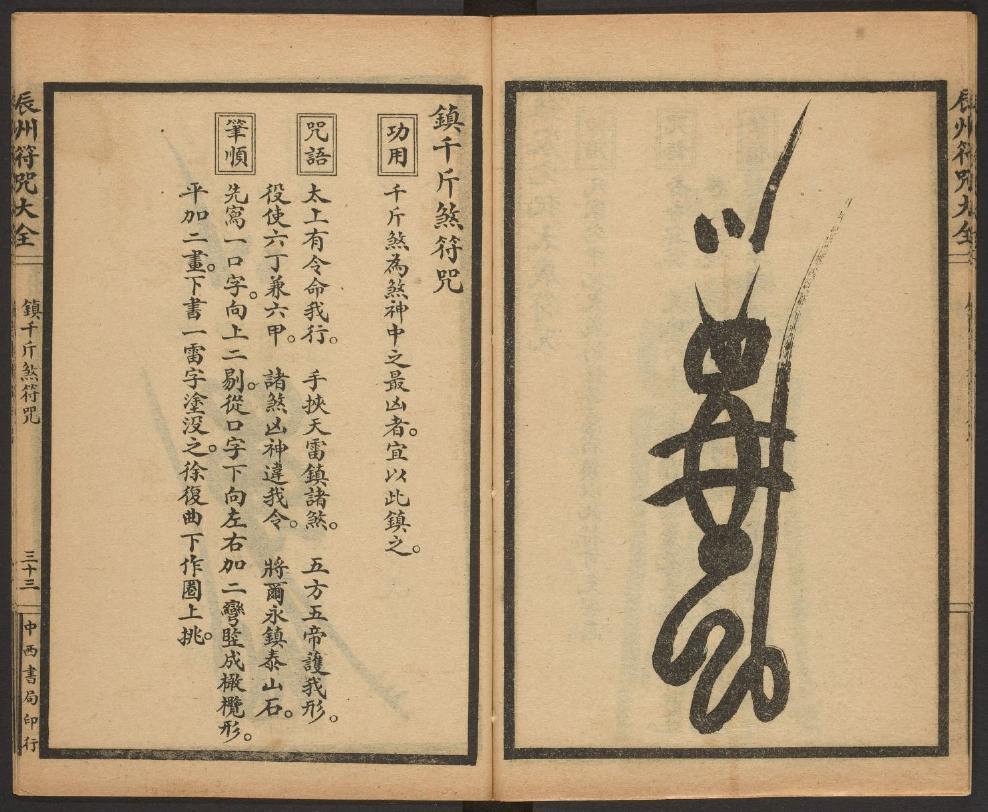 辰州符咒大全
鎮千斤煞符咒
功用
千斤煞為煞神中之最凶者。宜以此鎮之。
咒語
太上有令命我行。 手挾天雷鎮諸煞。 五方五帝護我形。
役使六丁兼六甲。 諸煞凶神違我令。 將爾永鎮泰山石。
筆順
先寫一口字。向上二剔。從口字下向左右加二彎豎成橄欖形。
平加二畫。下書一雷字塗没之。徐復曲下作圈上挑。
辰州符咒大全
鎮千斤煞符咒
三十三
中西書局印行